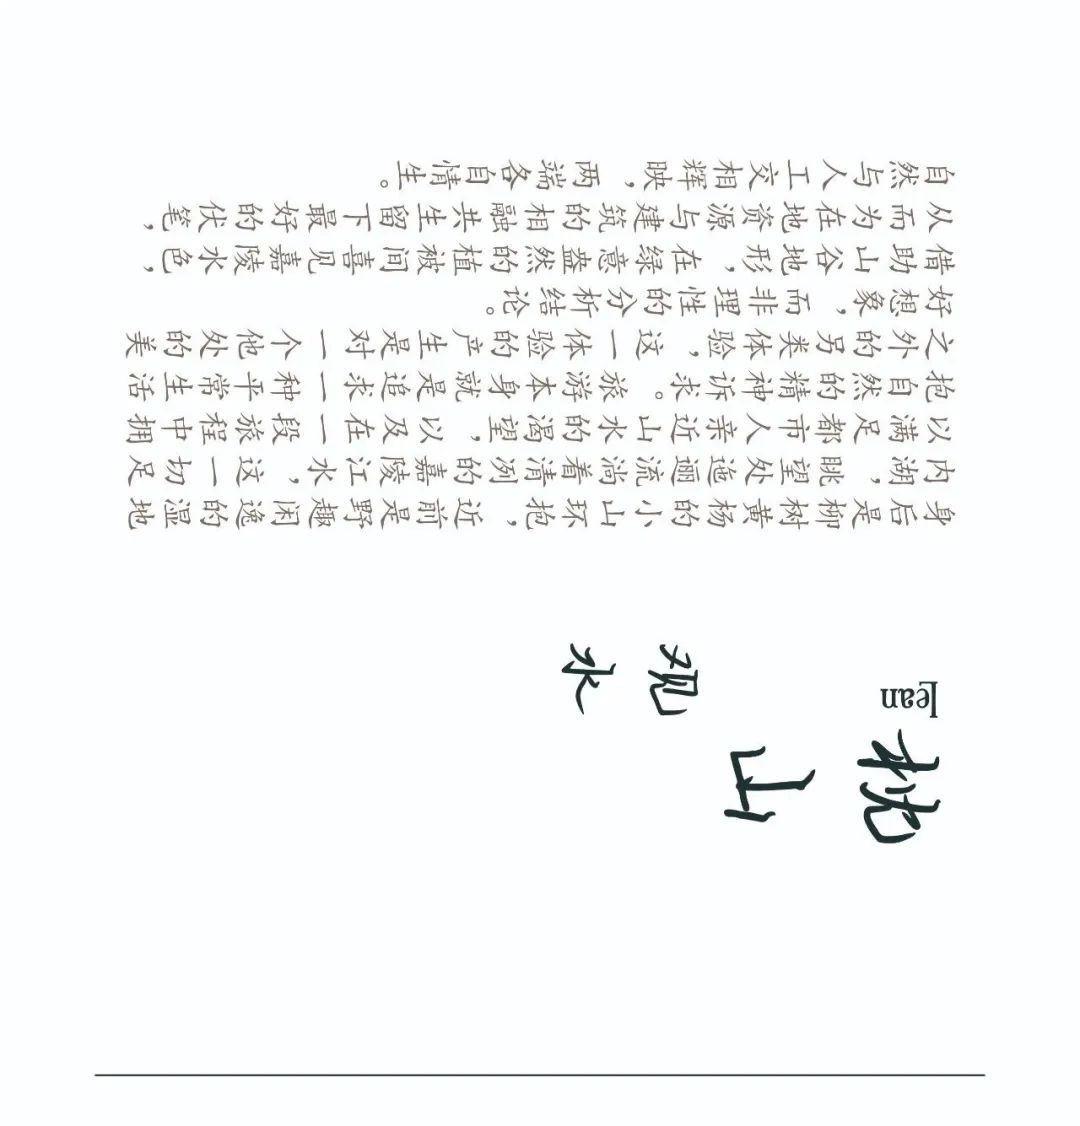 枕山
Lean
观水
身后是柳树黄杨的小山环抱，近前是野趣闲逸的湿地
内湖，眺望处迤逦流淌着清冽的嘉陵江水，这一切足
以满足都市人亲近山水的渴望，以及在一段旅程中拥
抱自然的精神诉求。旅游本身就是追求一种平常生活
之外的另类体验，这一体验的产生是对一个他处的美
好想象，而非理性的分析结论。
借助山谷地形，在绿意盎然的植被间喜见嘉陵水色，
从而为在地资源与建筑的相融共生留下最好的伏笔，
自然与人工交相辉映，两端各自情生。